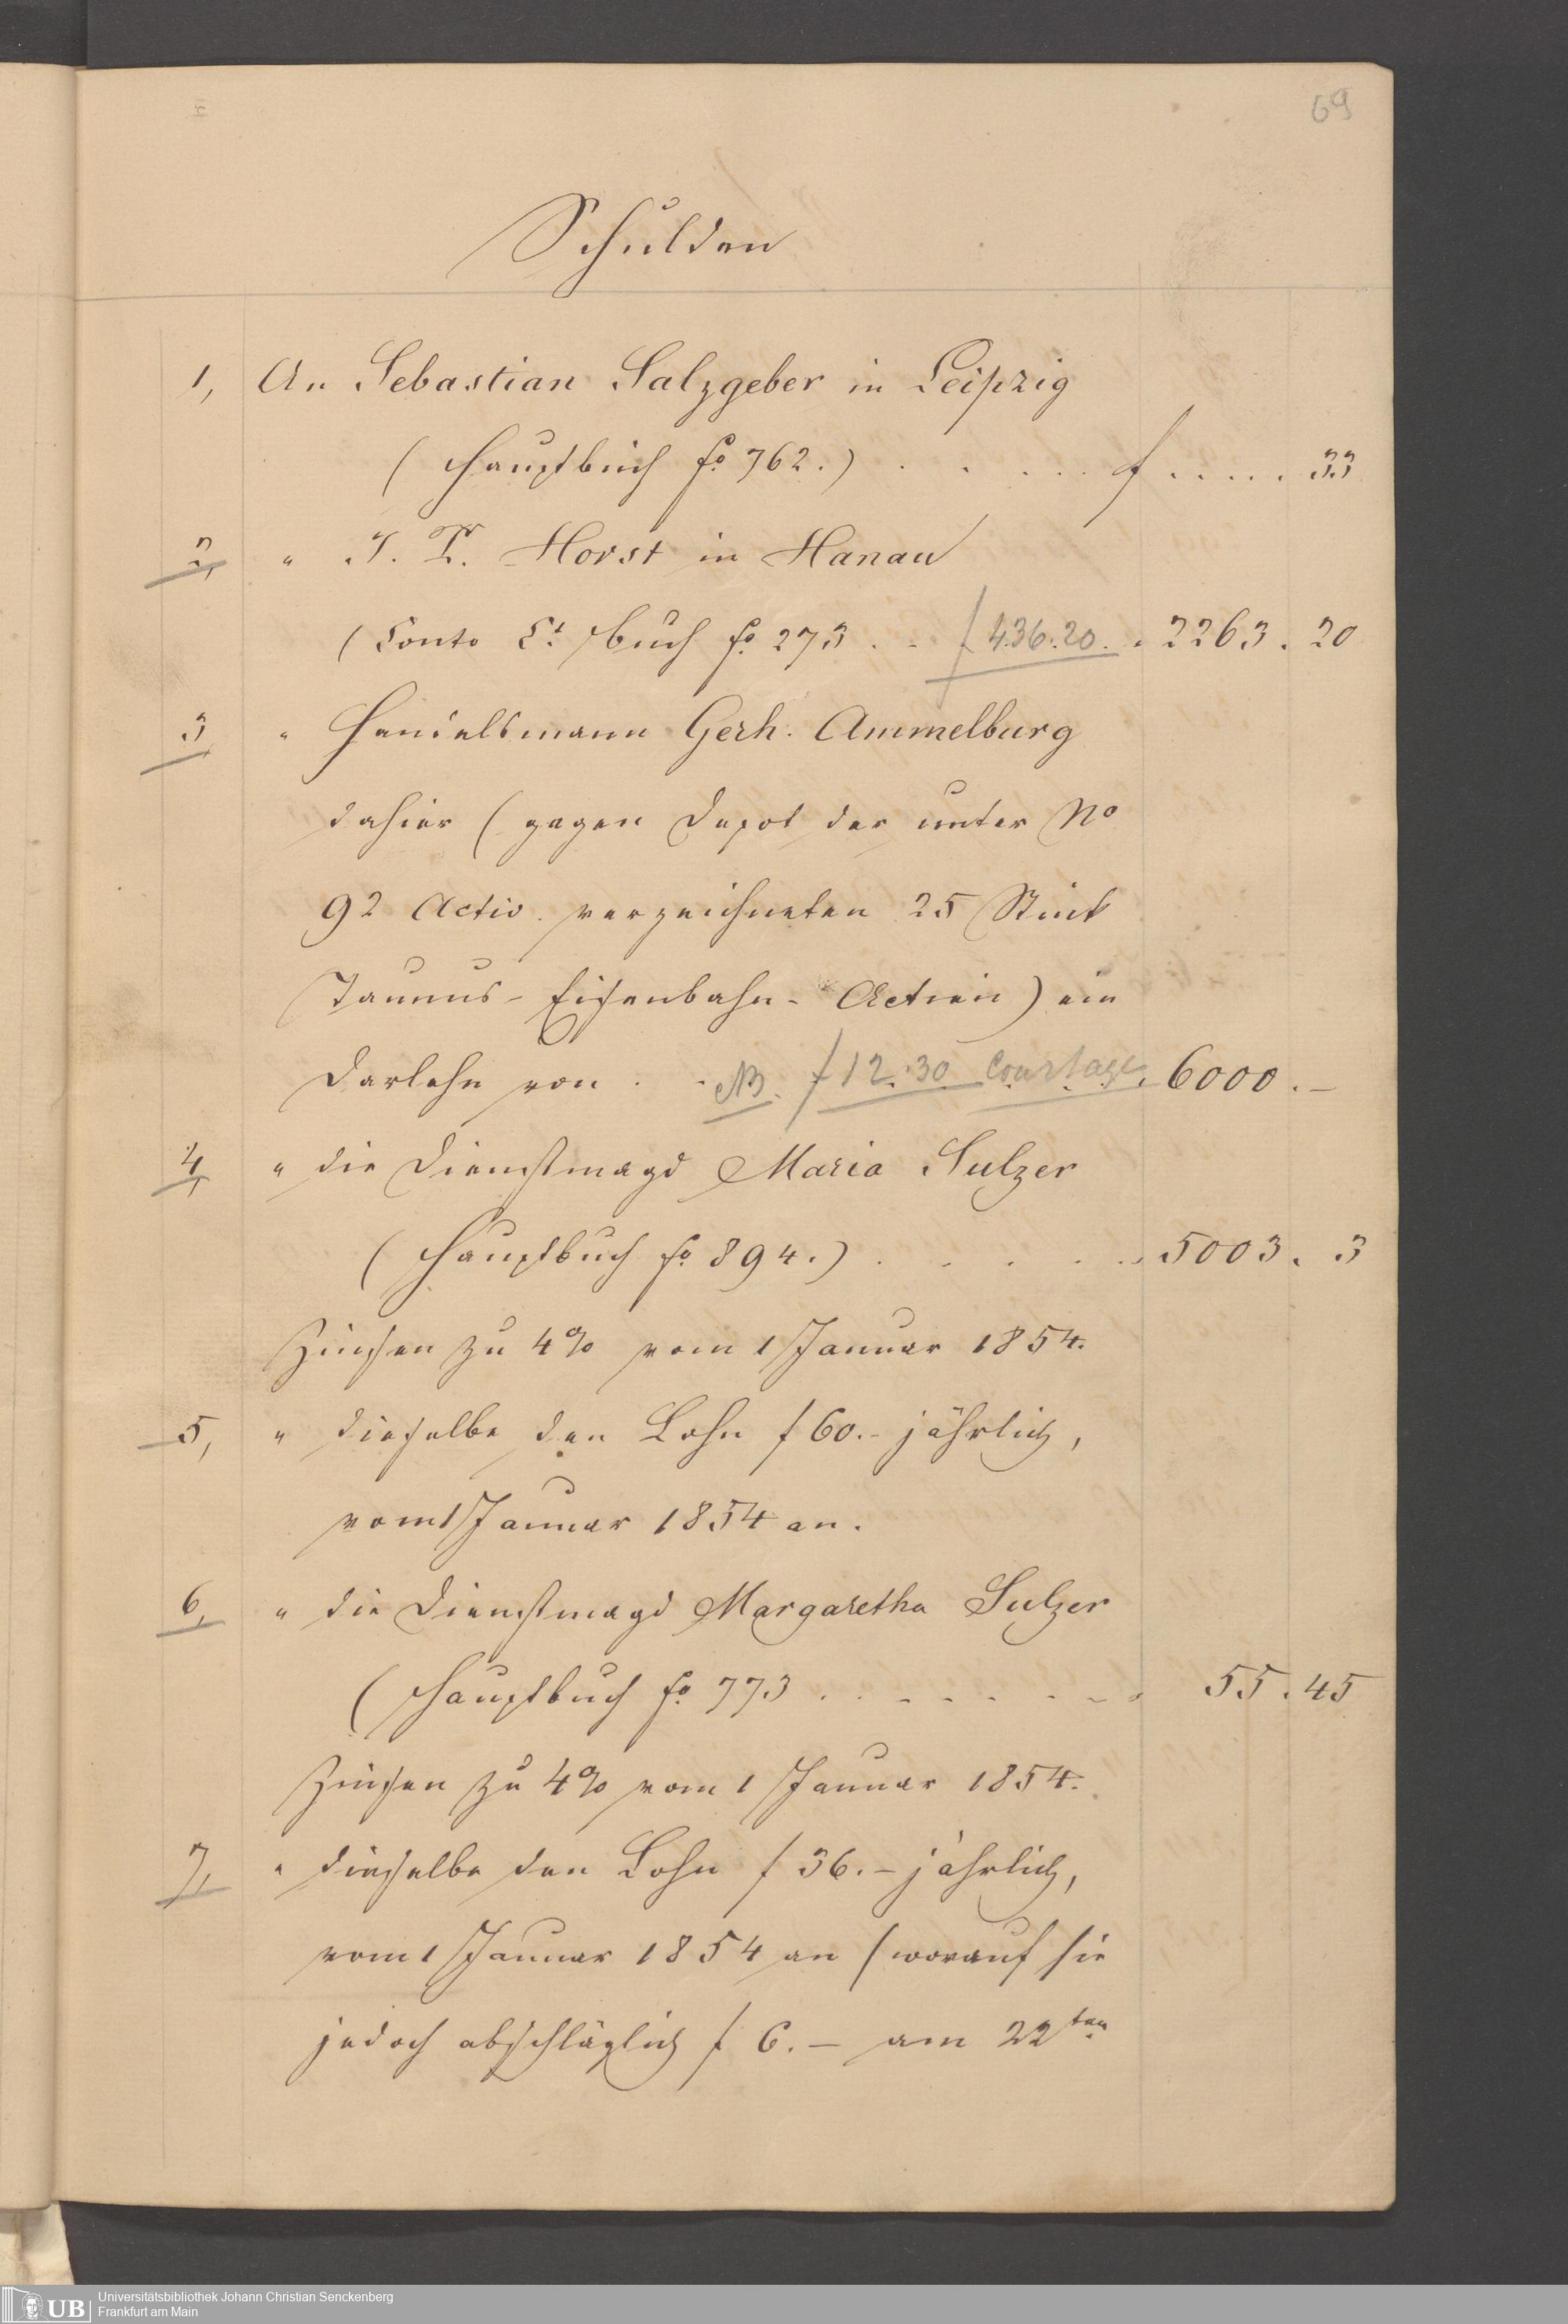 69
Schulden
1, An Sebastian Salzgeber in Leipzig
(Hauptbuch fo. 762.) . . . . . f . . . . . 33
2, " J. P. Horst in Hanau
(Conto Ct buch fo. 273 . . f 436.20. " 2263. 20
3 " Handelsmann Gerh. Ammelburg
dahier (gegen Depot der unter No
92 Activ. verzeichneten 25 Stück
Taunus-Eisenbahn-Actien) ein
Darlehn von . . NB. f 12.30 Courtage " 6000.–
4, " die Dienstmagd Maria Sulzer
(Hauptbuch fo. 894.) . . . . . " 5003. 3
Zinsen zu 4% vom 1 Januar 1854.
5, " dieselbe den Lohn f 60.– jährlich,
vom 1 Januar 1854 an.
6, " die Dienstmagd Margaretha Sulzer
(Hauptbuch fo. 773 . . . . . . . " 55. 45
Zinsen zu 4% vom 1 Januar 1854.
7, " dieselbe den Lohn f 36.– jährlich,
vom 1 Januar 1854 an (worauf sie
jedoch abschläglich f 6.– am 22ten
UB
Universitätsbibliothek Johann Christian Senckenberg
Frankfurt am Main